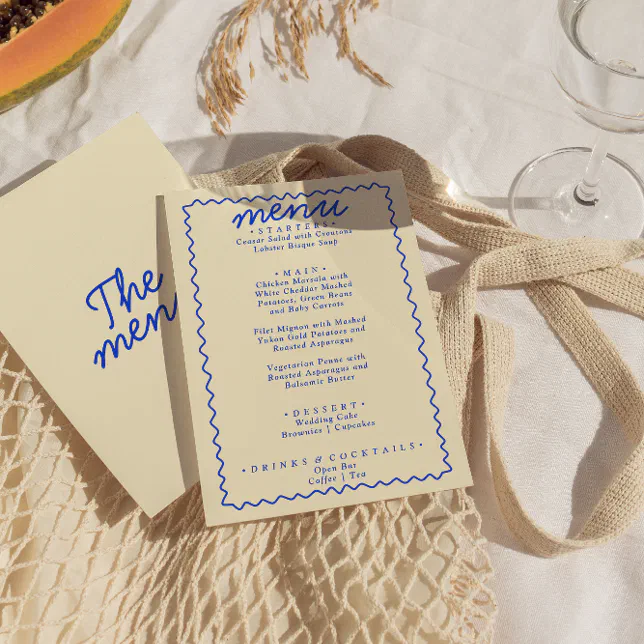 The
men
menu
• STARTERS •
Ceasar Salad with Croutons
Lobster Bisque Soup
• MAIN •
Chicken Marsala with
White Cheddar Mashed
Potatoes, Green Beans
and Baby Carrots
Filet Mignon with Mashed
Yukon Gold Potatoes and
Roasted Asparagus
Vegetarian Penne with
Roasted Asparagus and
Balsamic Butter
• DESSERT •
Wedding Cake
Brownies | Cupcakes
• DRINKS & COCKTAILS •
Open Bar
Coffee | Tea